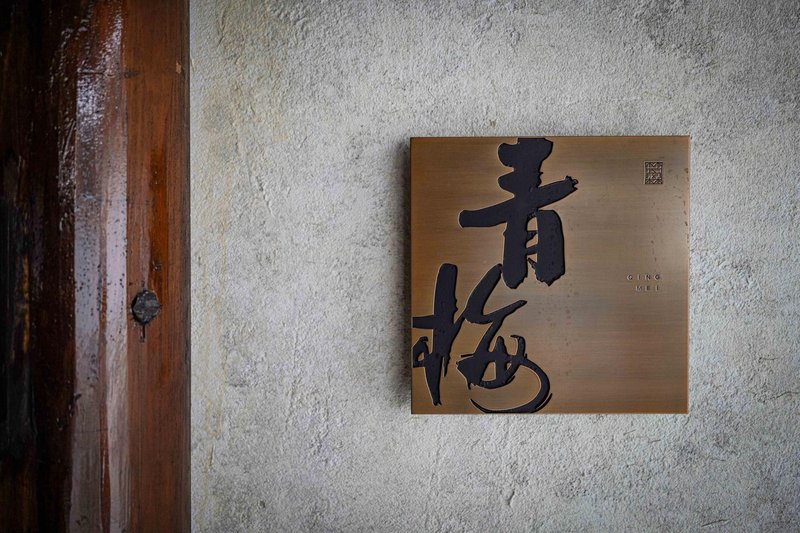 青梅
QING
MEI